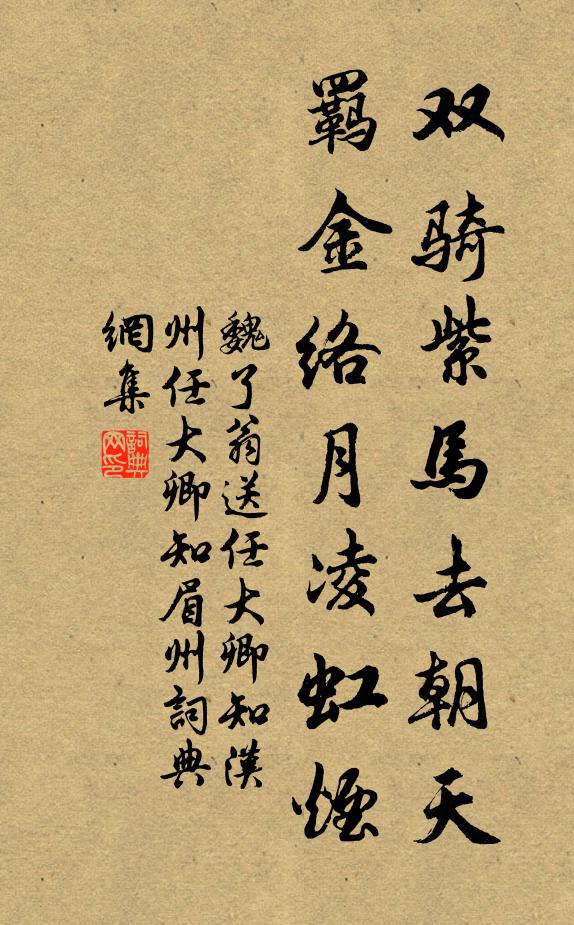 双骑紫馬去朝天
羁金络月凌虹煙
魏了翁送任大卿知漢
州任大卿知眉州詞典
網集
詞典
网印